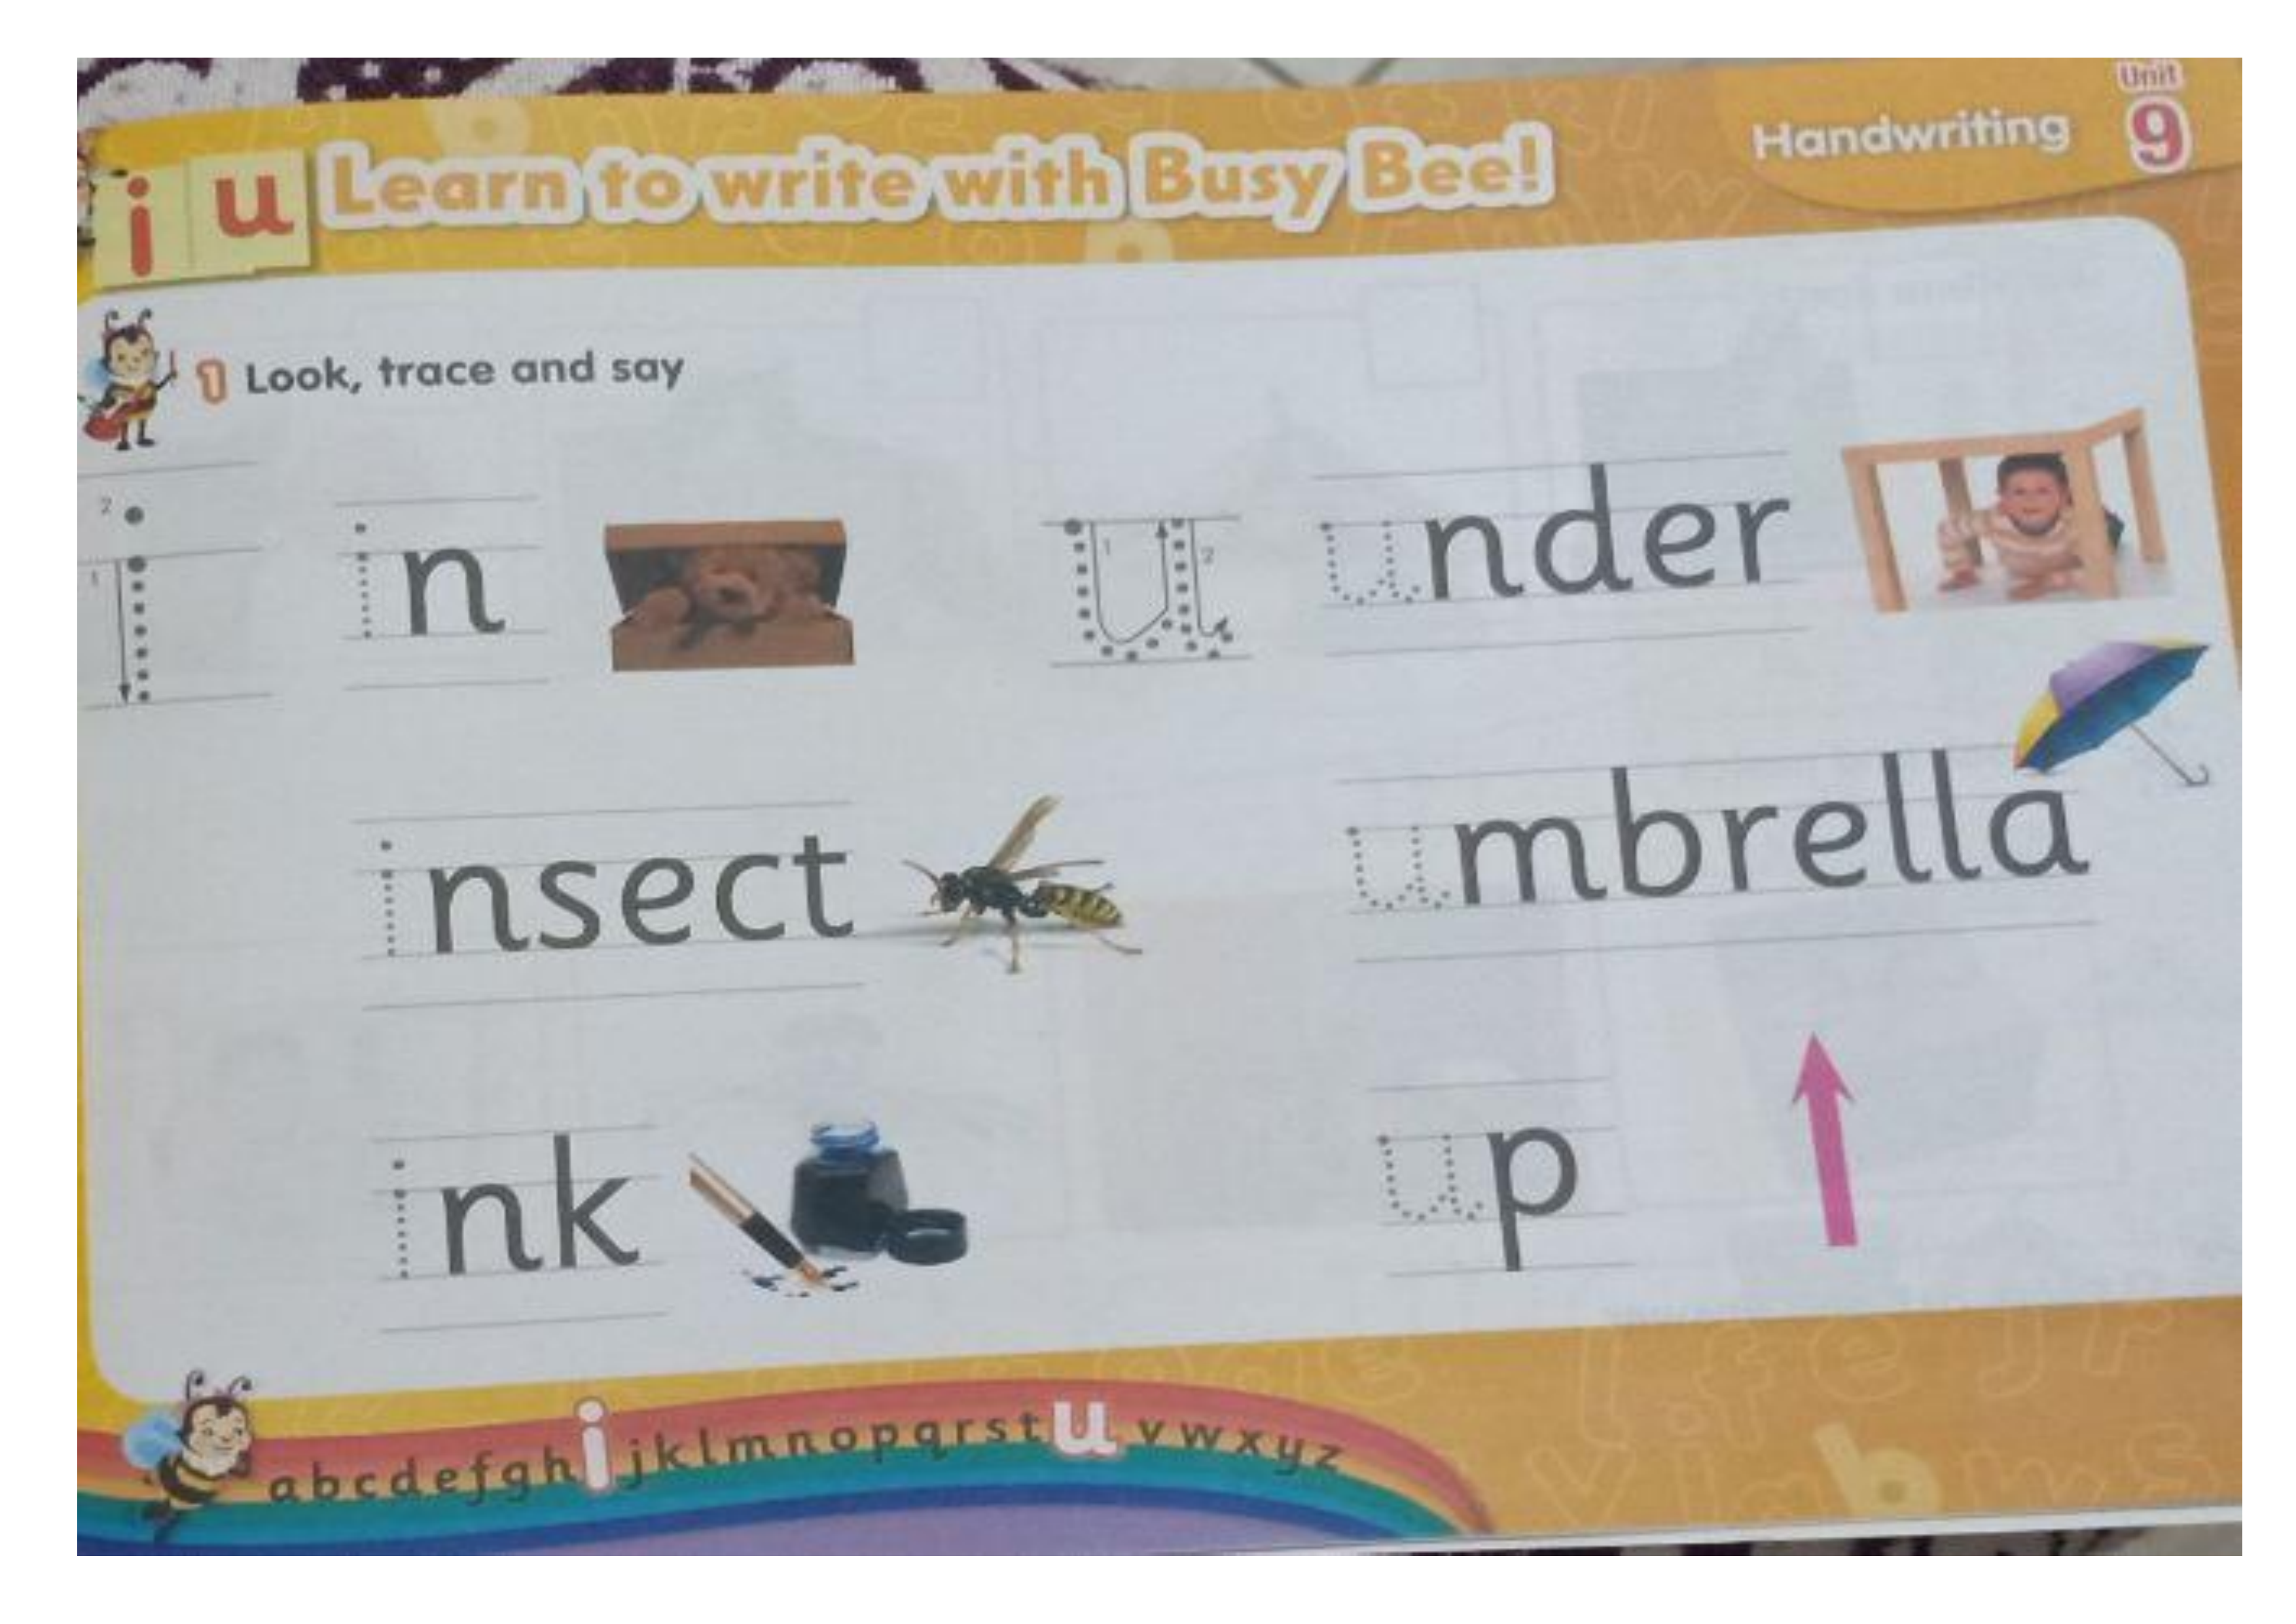 Unit
Handwriting 9
i u Learn to write with Busy Bee!
1 Look, trace and say
2
1
i in
1 2
u under
insect
umbrella
ink
up
abcdefghijklmnopqrstuvwxyz